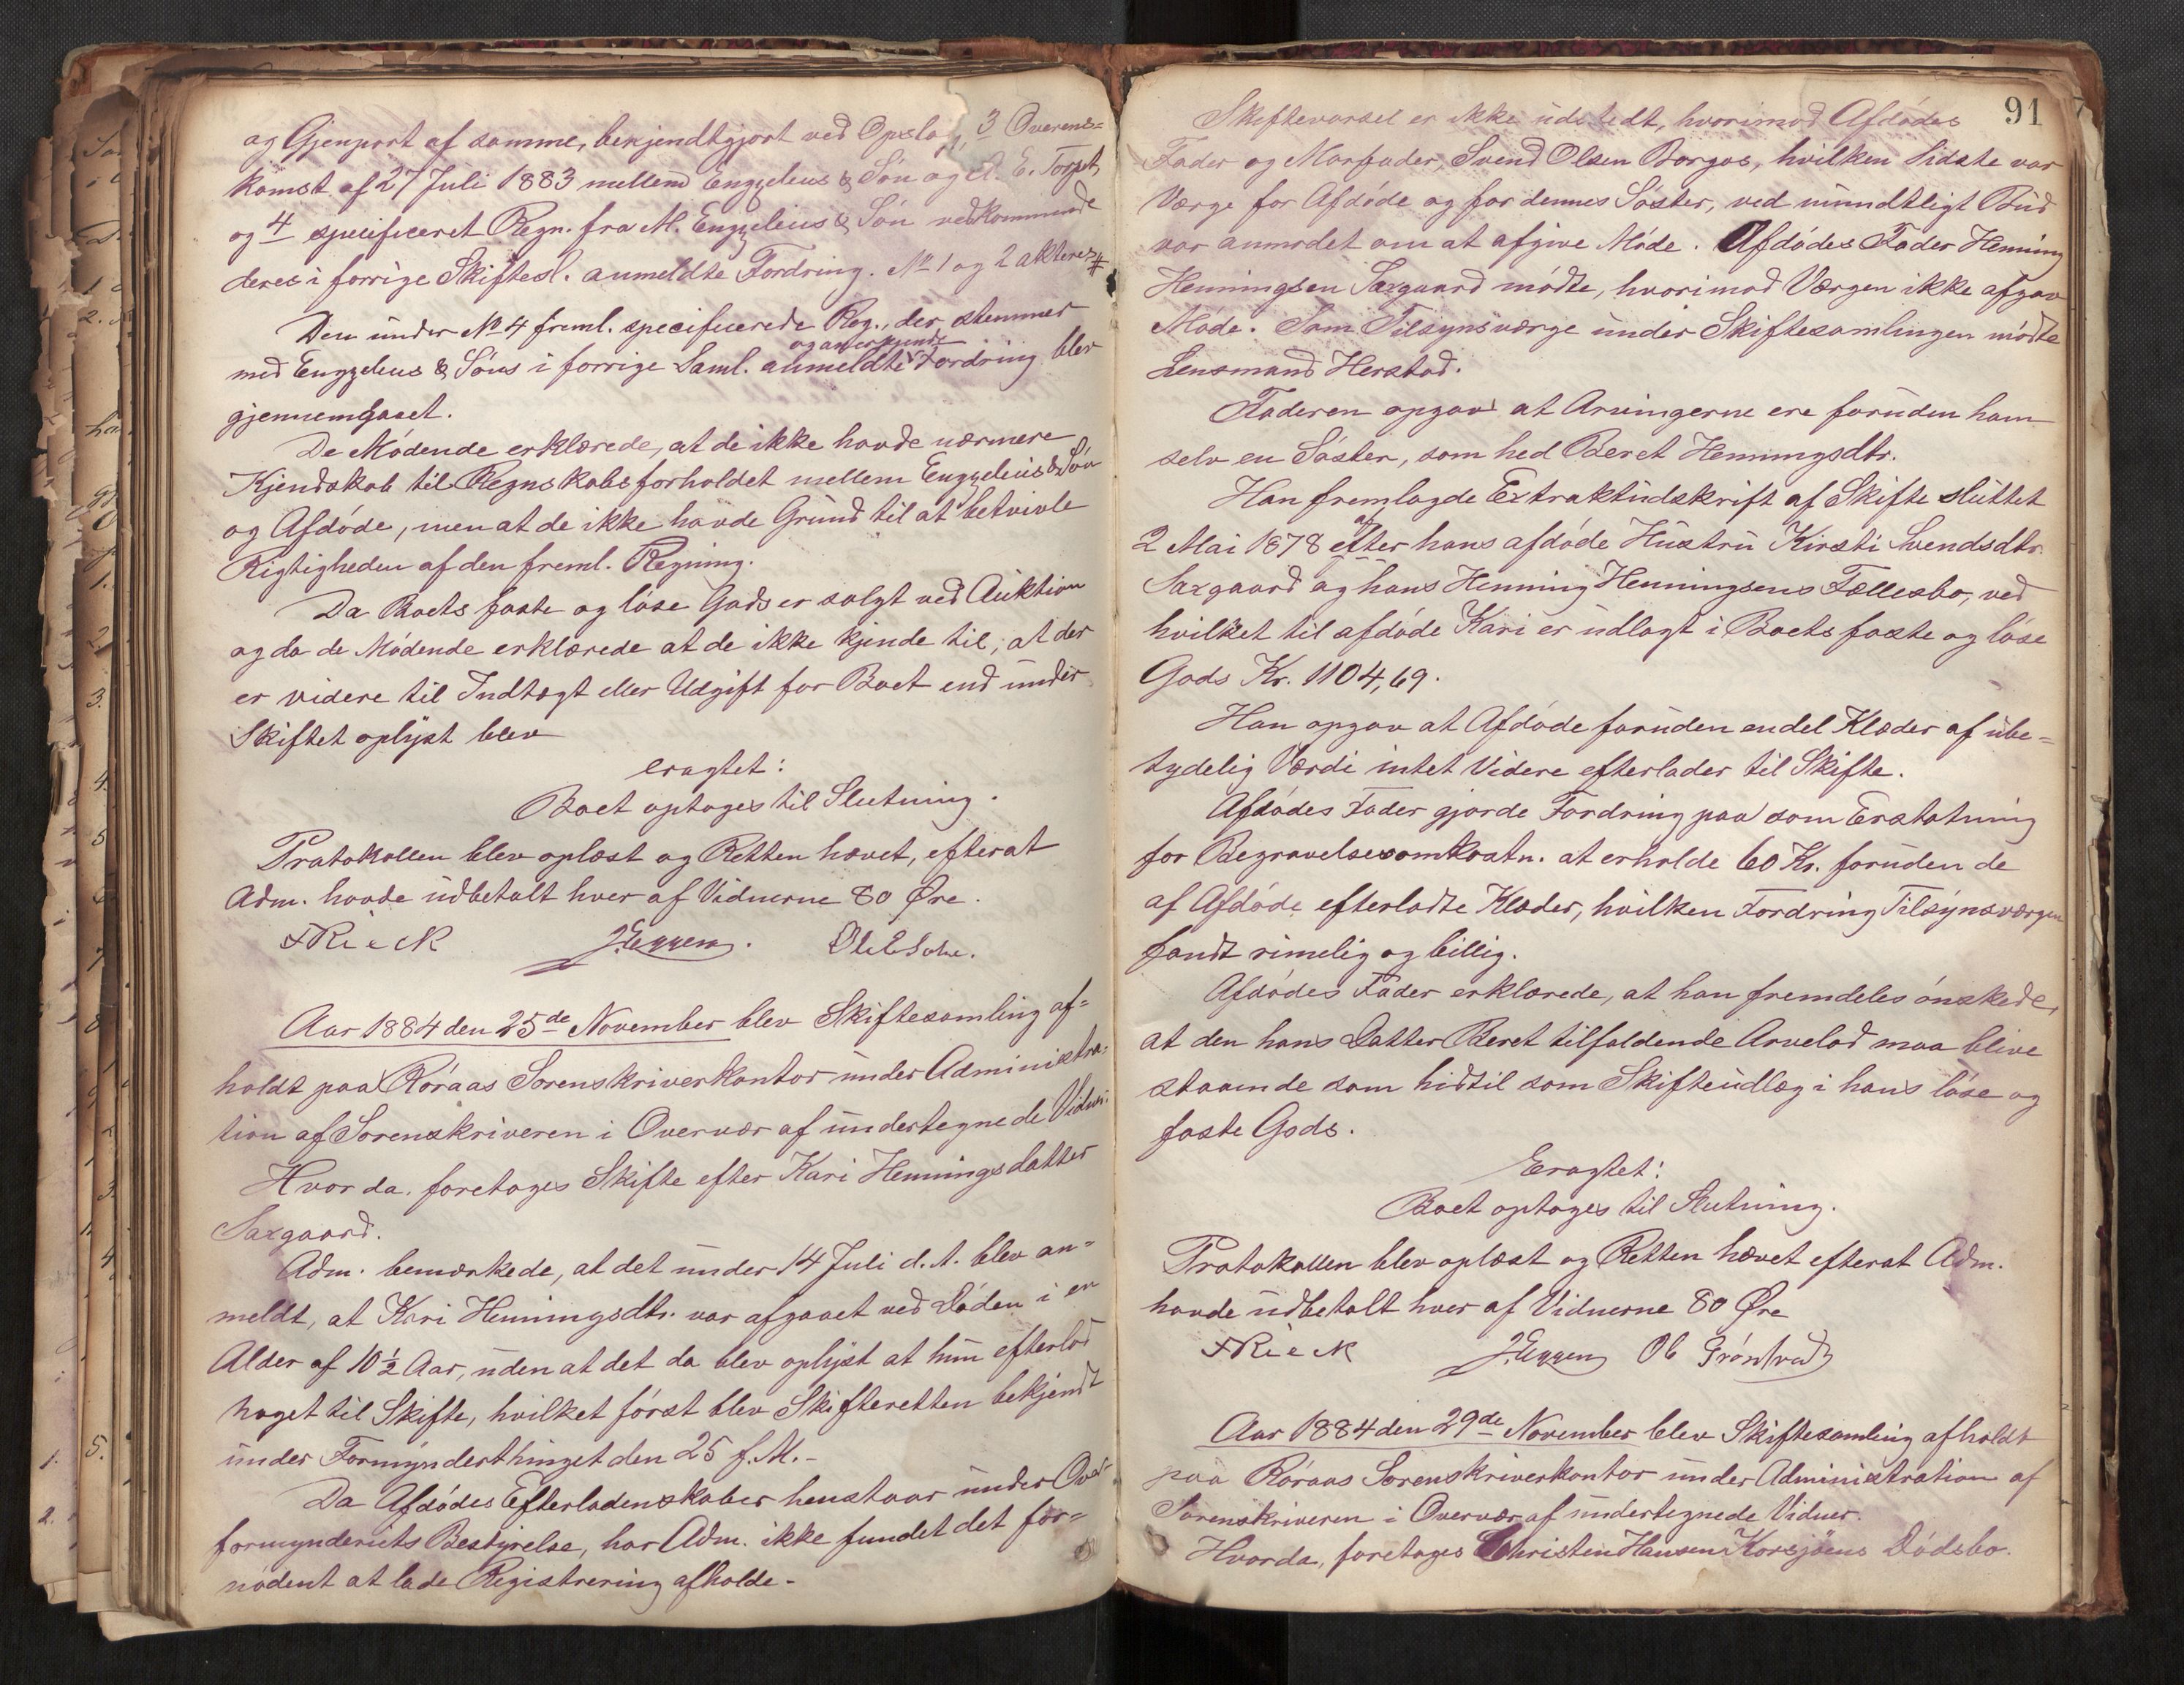 og Gjenpart af samme, bekjendtgjort ved Opslag, 3 Overens=
komst af 27 Juli 1883 mellem Engzelius & Søn og A. E. Torget,
og 4 specificeret Regn. fra M. Engzelius & Søn vedkommende
deres i forrige Skiftesl. anmeldte Fordring. No 1 og 2 akteres
Den under No 4 freml. specificerede Reg., der stemmer
med Engzelius & Søns i forrige Saml. anmeldte og anerkjendte Fordring blev
gjennemgaaet.
De Mødende erklærede, at de ikke havde nærmere
Kjendskab til Regnskabsforholdet mellem Engzelius & Søn
og Afdøde, men at de ikke havde Grund til at betvivle
Rigtigheden af den freml. Regning.
Da Boets faste og løse Gods er solgt ved Auktion
og da de Mødende erklærede at de ikke kjende til, at der
er videre til Indtægt eller Udgift for Boet end under
Skiftet oplyst blev
eragtet:
Boet optages til Slutning.
Protokollen blev oplæst og Retten hævet, efterat
Adm. havde udbetalt hver af Vidnerne 80 Øre.
F Rieck J. Eggen. Ole E
Aar 1884 den 25de November blev Skiftesamling af=
holdt paa Røraas Sorenskriverkontor under Administra=
tion af Sorenskriveren i Overvær af undertegnede Vidner.
Hvorda. foretoges Skifte efter Kari Henningsdatter
Saxgaard.
Adm. bemærkede, at det under 14 Juli d. A. blev an=
meldt, at Kari Henningsdtr. var afgaaet ved Døden i en
Alder af 10½ Aar, uden at det da blev oplyst at hun efterlod
noget til Skifte, hvilket først blev Skifteretten bekjendt
under Formynderthinget den 25 f. M. -
Da Afdødes Efterladenskaber henstaar under Over=
formynderiets Bestyrelse, har Adm. ikke fundet det for=
nødent at lade Registrering afholde. -
91
Skiftevarsel er ikke udstedt, hvorimod Afdødes
Fader og Morfader, Svend Olsen Borgos, hvilken sidste var
Værge for Afdøde og for dennes Søster, ved mundtligt Bud
var anmodet om at afgive Møde. Afdødes Fader Henning
Henningsen Saxgaard mødte, hvorimod Værgen ikke afgav
Møde. Som Tilsynsværge under Skiftesamlingen mødte
Lensmand Herstad.
Faderen opgav at Arvingerne ere foruden ham
selv en Søster, som hed Beret Henningsdtr.
Han fremlagde Extraktudskrift af Skifte sluttet
2 Mai 1878 efter hans afdøde Hustru Kirsti Svendsdtr.
Saxgaard og hans Henning Henningsens Fællesbo, ved
hvilket til afdøde Kari er udlagt i Boets faste og løse
Gods Kr. 1104,69.
Han opgav at Afdøde foruden endel Klæder af ube=
tydelig Værdi intet Videre efterlader til Skifte.
Afdødes Fader gjorde Fordring paa som Erstatning
for Begravelsesomkostn. at erholde 60 Kr. foruden de
af Afdøde efterladte Klæder, hvilken Fordring Tilsynsværgen
fandt rimelig og billig.
Afdødes Fader erklærede, at han fremdeles ønskede,
at den hans Datter Beret tilfaldende Arvelod maa blive
staaende som hidtil som Skifteudlæg i hans løse og
faste Gods.
Eragtet:
Boet optages til Slutning.
Protokollen blev oplæst og Retten hævet efterat Adm.
havde udbetalt hver af Vidnerne 80 Øre
F Rieck J. Eggen
Aar 1884 den 29de November blev Skiftesamling afholdt
paa Røraas Sorenskriverkontor under Administration af
Sorenskriveren i Overvær af undertegnede Vidner.
Hvorda, foretoges Christen Hansen Korsjøens Dødsbo.